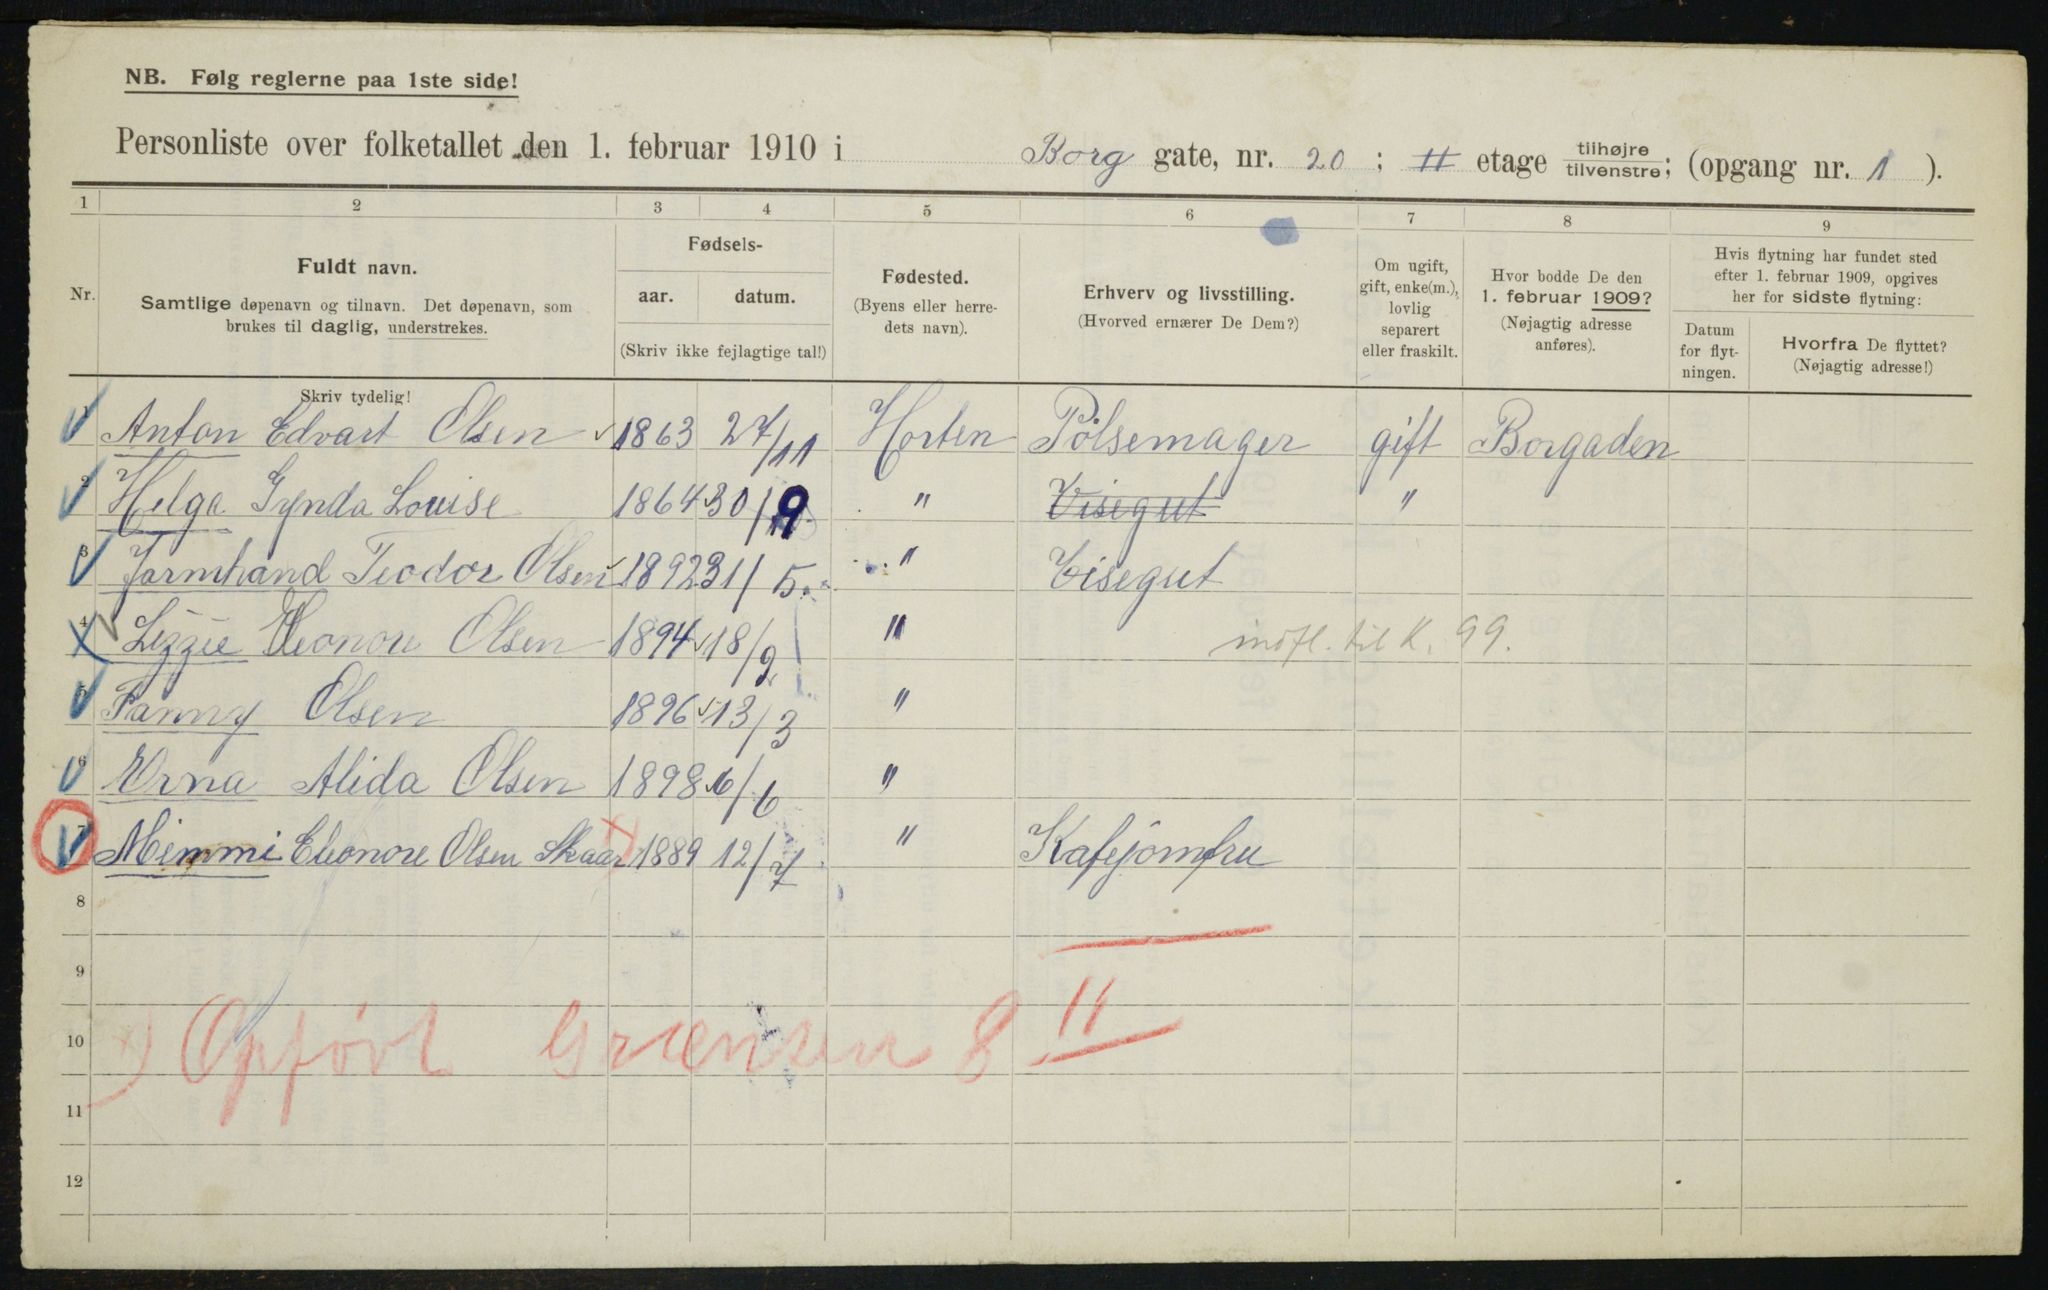 NB. Følg reglerne paa 1ste side!
Personliste over folketallet den 1. februar 1910 i Borg gate, nr. 20 ; II etage tilhøjre tilvenstre; (opgang nr. 1 ).
1 2 3 4 5 6 7 8 9
Nr.
Fuldt navn.
Samtlige døpenavn og tilnavn. Det døpenavn, som
brukes til daglig, understrekes.
Skriv tydelig!
Fødsels-
aar. datum.
(Skriv ikke fejlagtige tal!)
Fødested.
(Byens eller herre-
dets navn).
Erhverv og livsstilling.
(Hvorved ernærer De Dem?)
Om ugift,
gift, enke(m.),
lovlig
separert
eller fraskilt.
Hvor bodde De den
1. februar 1909?
(Nøjagtig adresse
anføres).
Hvis flytning har fundet sted
efter 1. februar 1909, opgives
her for sidste flytning:
Datum
for flyt-
ningen.
Hvorfra De flyttet?
(Nøjagtig adresse!)
1 Anton Edvart Olsen 1863 27/11 Horten Pølsemager gift Borgaden
2 Helga Gynda Louise 1864 30/9 " Visegut "
3 Jarmhand Teodor Olsen 1892 31/5. " Visegut
4 Lizzie Eleonore Olsen 1894 18/2 " indfl. til K. 99.
5 Fanny Olsen 1896 13/3 "
6 Erna Alida Olsen 1898 6/6 "
7 Mimmi Eleonore Olsen Skaar x) 1889 12/7 " Kafejomfru
8
9
10
x) Opført Grænsen 8 II
11
12